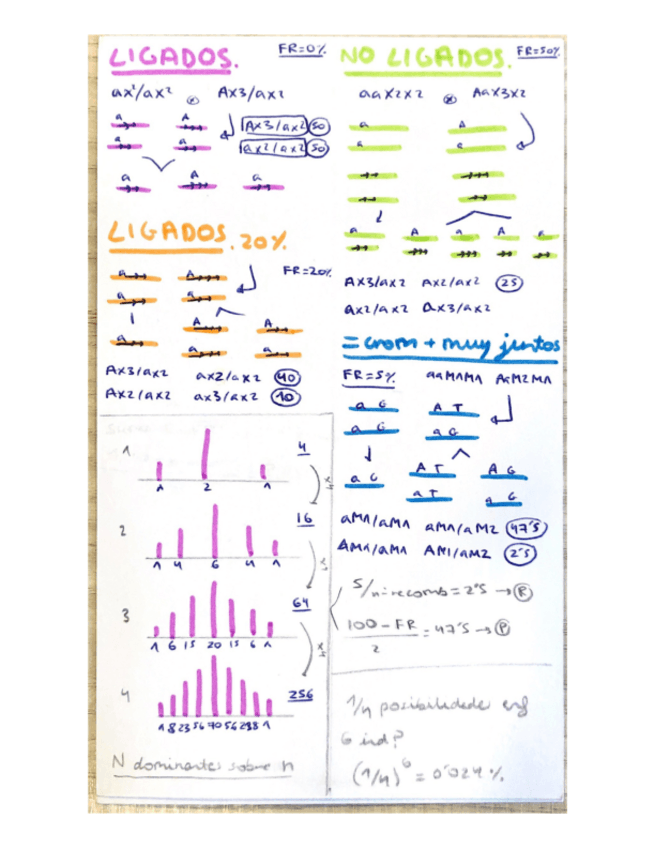 LIGADOS.
FR=0%
ax²/ax² ⊗ Ax3/ax2
a A
a a
Ax3/ax2 50
ax2/ax2 50
a A a
LIGADOS. 20%
FR=20%
a A
a a
A A
a a a
Ax3/ax2 ax2/ax2 40
Ax2/ax2 ax3/ax2 10
1 4
1 2 1
x4
2 16
1 4 6 4 1
x4
3 64
1 6 15 20 15 6 1
x4
4 256
1 8 23 56 70 56 28 8 1
N dominantes sobre n
NO LIGADOS.
FR=50%
aax2x2 ⊗ Aax3x2
a A
a a
a A a A a
Ax3/ax2 Ax2/ax2 25
ax2/ax2 ax3/ax2
= crom + muy juntos
FR=5% aaM1M1 AaM2M1
a G A T
a G a G
a G A T A G
a T a G
aM1/aM1 aM1/aM2 47'5
AM1/aM1 AM1/aM2 2'5
5/nº recomb = 2'5 → R
100-FR/2 = 47'5 → P
1/4 posibilidades enf
6 ind?
(1/4)⁶ = 0'024%